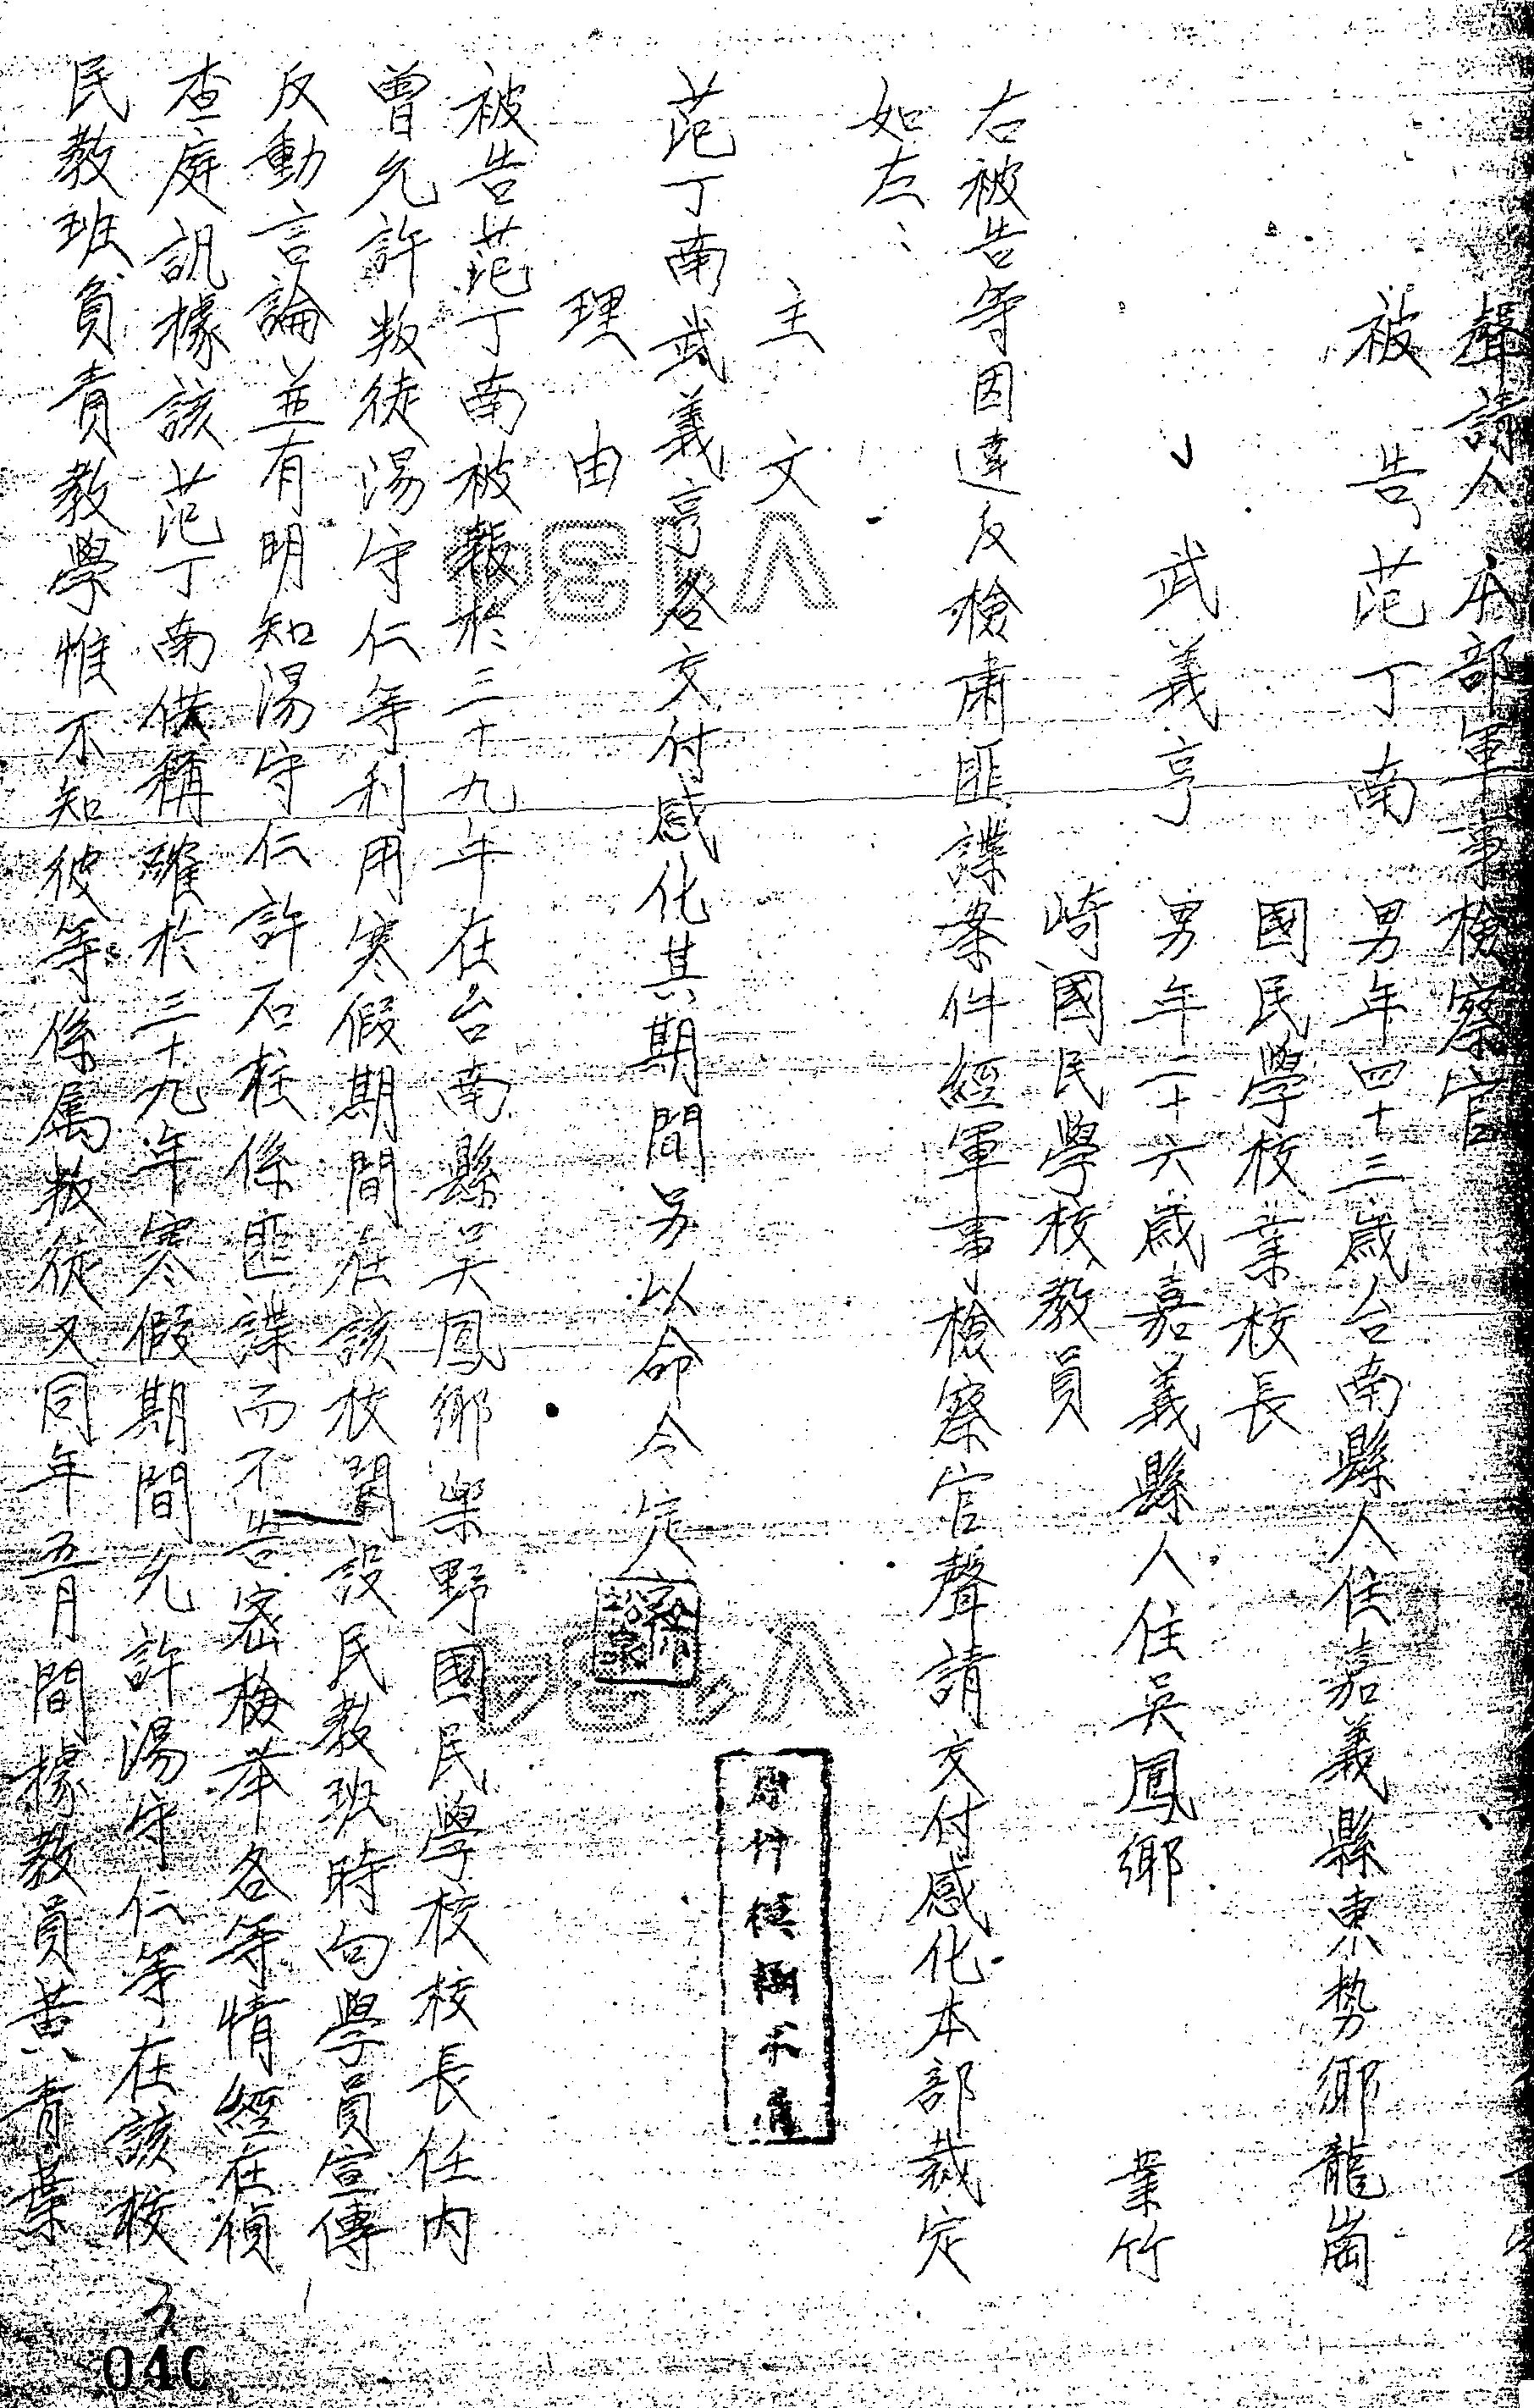 聲請人　本部軍事檢察官
被告　范丁南　男年四十三歲台南縣人住嘉義縣東勢鄉龍崗
國民學校業校長
武義亨　男年二十六歲嘉義縣人住吳鳳鄉　業竹
崎國民學校教員
右被告等因違反檢肅匪諜条件經軍事檢察官聲請交付感化本部裁定
如左：
主文
范丁南武義亨各交付感化其期間另以命令定
理由
被告范丁南被報於三十九年在台南縣吳鳳鄉樂野國民學校校長任內
曾允許叛徒湯守仁等利用寒假期間在該校開設民教班時向學員宣傳
反動言論並有明知湯守仁許石柱係匪諜而不告密檢举各等情經在偵
查庭訊據該范丁南供稱確於三十九年寒假期間允許湯守仁等在該校
民教班負責教學惟不知彼等係属叛徒又同年五月間據教員黃青葉
040